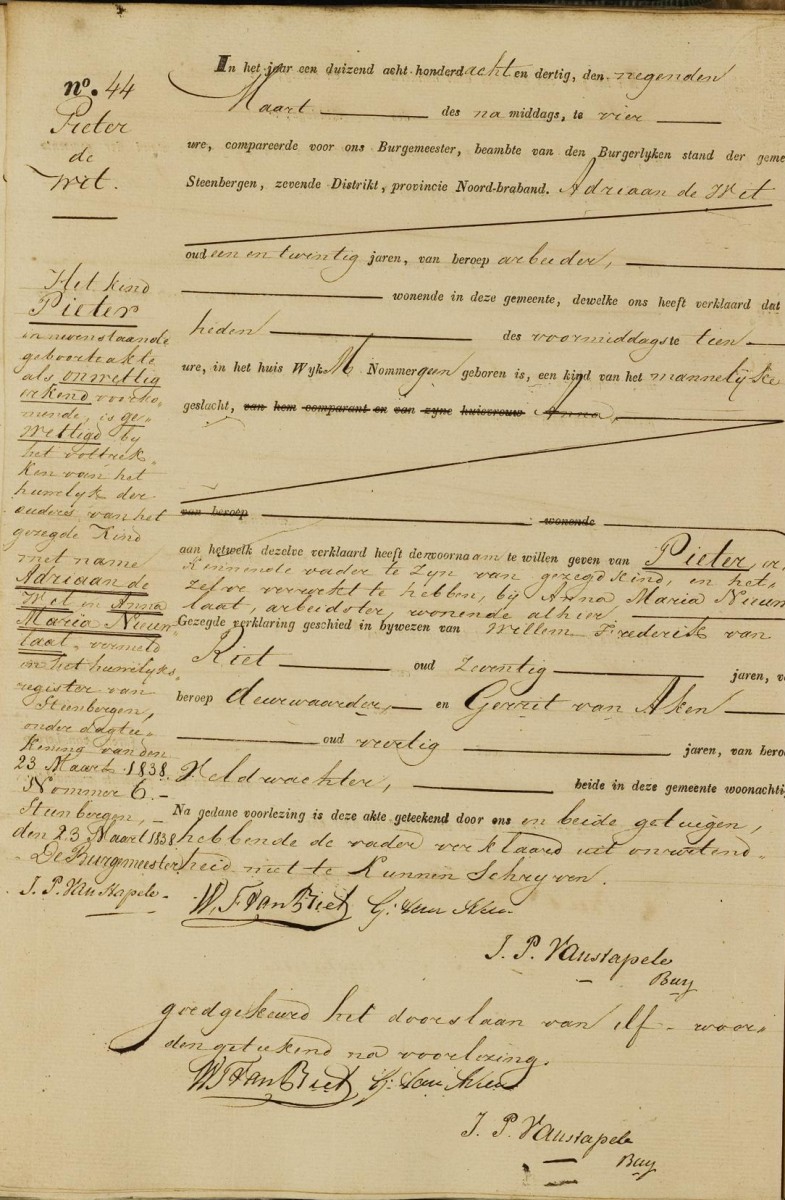 no. 44
Pieter
de
Wit.
In het jaar een duizend acht honderd acht en dertig, den negenden
Maart des na middags, te vier
ure, compareerde voor ons Burgemeester, beambte van den Burgerlyken stand der geme
Steenbergen, zevende Distrikt, provincie Noord-braband. Adriaan de Wet
oud een en twintig jaren, van beroep arbeider,
wonende in deze gemeente, dewelke ons heeft verklaard dat
heden des voormiddags te tien
ure, in het huis Wyk M Nommer geen geboren is, een kind van het mannelyke
geslacht, van hem comparant en van zyne huisvrouw Anna,
van beroep wonende
aan hetwelk dezelve verklaard heeft de voornaam te willen geven van Pieter, er,
kennende vader te zyn van gezegd kind, en het,
zelve verwekt te hebben, by Anna Maria Nieuw
laat, arbeidster, wonende alhier,
Gezegde verklaring geschied in bywezen van Willem Frederik van
Riet oud zeventig jaren, v
beroep deurwaarder, en Gerrit van Aken
oud veertig jaren, van bero
Veldwachter, beide in deze gemeente woonachtig
Na gedane voorlezing is deze akte geteekend door ons en beide getuigen,
hebbende de vader verklaard uit onwetend
heid niet te kunnen Schryven.
W. F. Van Riet G. van Aken
J. P. Vanstapele
Bur
goedgekeurd het doorslaan van elf woor,
den getekend na voorlezing.
W F Van Riet G. van Aken
J. P. Vanstapele
Bur
Het kind
Pieter
in nevenstaande
geboorteakte
als onwettig
erkend voorko,
mende, is ge,
wettigd by
het voltrek,
ken van het
huwelyk der
ouders van het
gezegde Kind
met name
Adriaan de
Wet en Anna
Maria Nieuw,
laat, vermeld
in het huwelyks,
register van
Steenbergen,
onder dagte,
kening van den
23 Maart 1838.
Nommer 6.
Steenbergen,
den 23 Maart 1838
De Burgemeester
J. P. Vanstapele